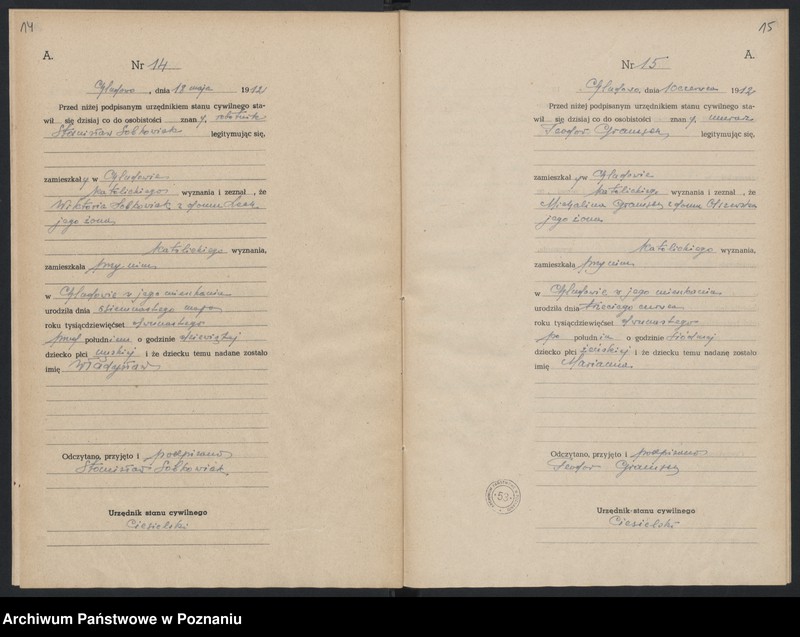 14
A.
Nr 14
, dnia 18 maja 1912
Przed niżej podpisanym urzędnikiem stanu cywilnego sta-
wił się dzisiaj co do osobistości znany,
Stanisław Sobkowiak legitymując się,
zamieszkały w
katolickiego wyznania i zeznał , że
Wiktoria Sobkowiak z domu
jego żona
katolickiego wyznania,
zamieszkała przy nim
w w jego mieszkaniu
urodziła dnia maja
roku tysiącdziewięćset dwunastego
przed południem o godzinie dziewiątej
dziecko płci męskiej i że dziecku temu nadane zostało
imię Władysław
Odczytano, przyjęto i podpisano
Stanisław Sobkowiak
Urzędnik stanu cywilnego
Ciesielski
15
A.
Nr 15
, dnia 10 czerwca 1912
Przed niżej podpisanym urzędnikiem stanu cywilnego sta-
wił się dzisiaj co do osobistości znany,
Teodor legitymując się,
zamieszkały w
katolickiego wyznania i zeznał , że
Michalina z domu
jego żona
katolickiego wyznania,
zamieszkała przy nim
w w jego mieszkaniu
urodziła dnia trzeciego czerwca
roku tysiącdziewięćset dwunastego
po południu o godzinie siódmej
dziecko płci żeńskiej i że dziecku temu nadane zostało
imię Marianna
Odczytano, przyjęto i podpisano
Teodor
53
Urzędnik stanu cywilnego
Ciesielski
Archiwum Państwowe w Poznaniu